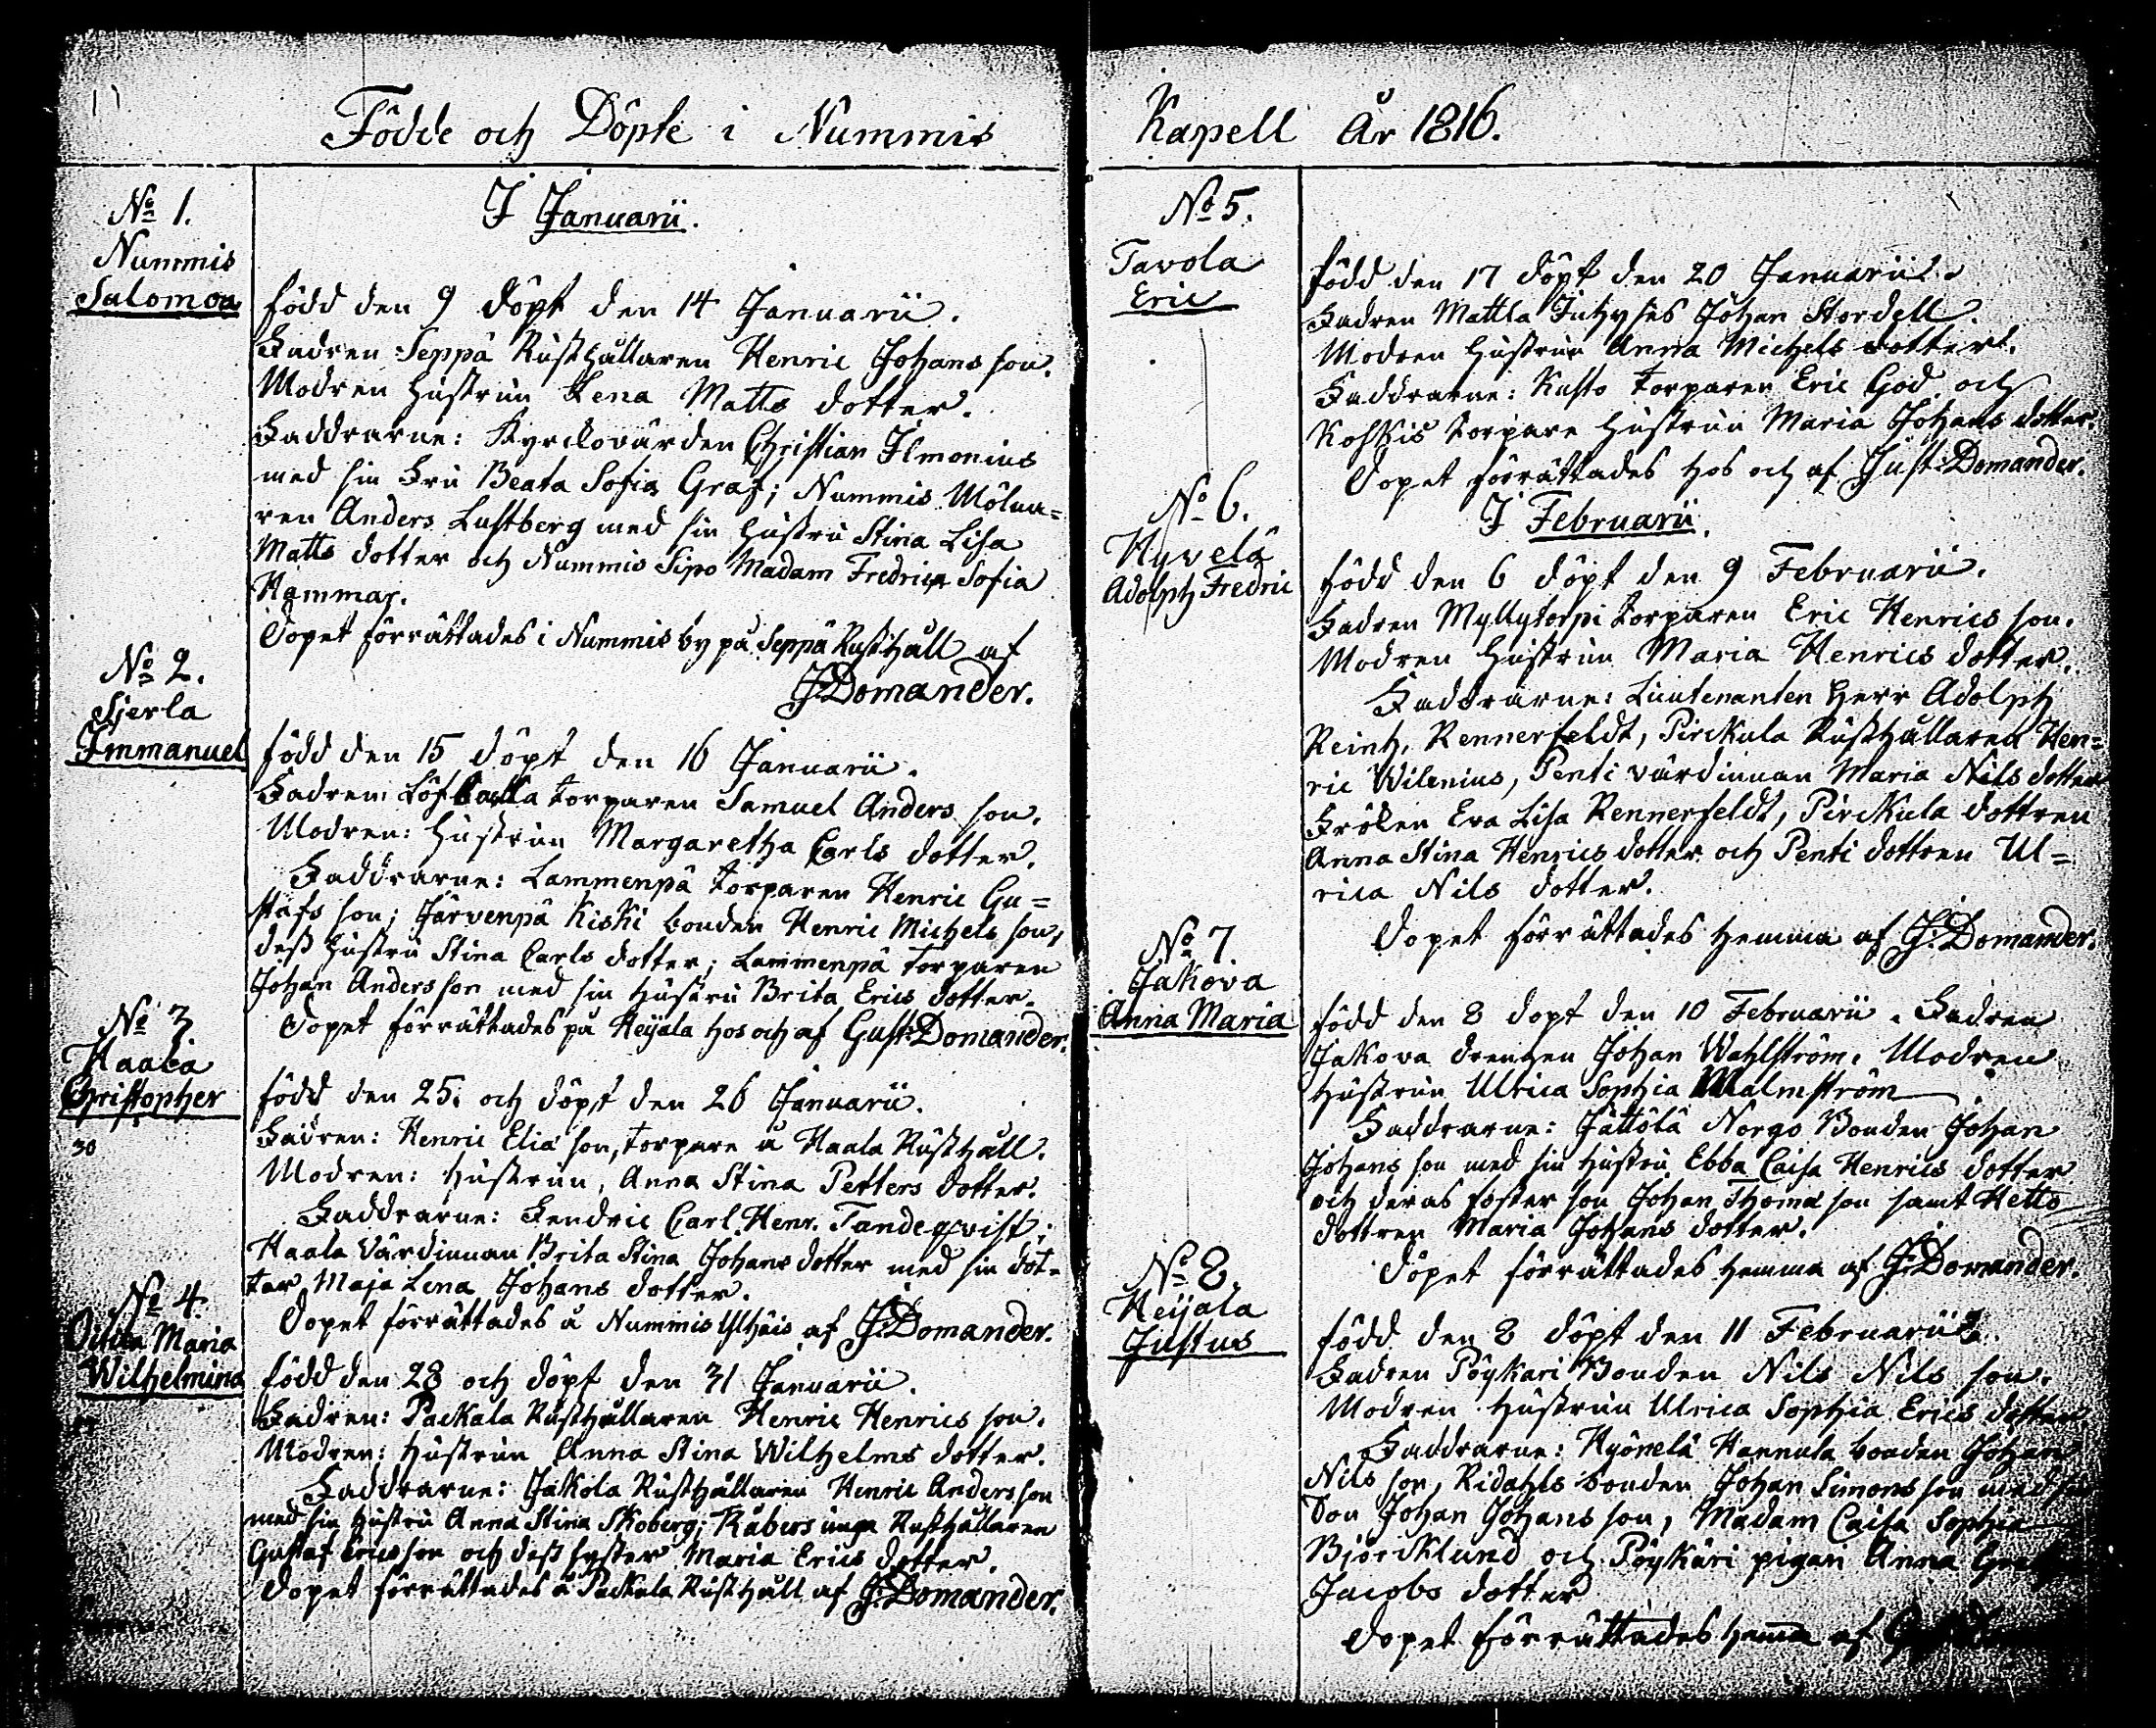 Födde och Döpte i Nummis Kapell År 1816.
No 1.
Nummis
Salomon
I Januarii.
född den 9 döpt den 14 Januarii.
Fadren Seppä Rusthållaren Henric Johans son.
Modren hustrun Lena Matts dotter.
Faddrarne: Kyrckovärden Christian Ilmonius
med sin Fru Beata Sofia Graf; Nummis Mölna=
ren Anders Lustberg med sin hustru Stina Lisa
Matts dotter och Nummis Sipo Madam Fredrica Sofia
Hammar.
Dopet förrättades i Nummis by på Seppä Rusthåll af
J. Domander.
No 2.
Sjerla
Immanuel
född den 15 döpt den 16 Januarii.
Fadren: torparen Samuel Anders son.
Modren: hustrun Margaretha Carls dotter.
Faddrarne: Lammenpä torparen Henric Gu=
stafs son; Järvenpä Kiski bonden Henric Michels son,
dess hustru Stina Carls dotter; Lammenpä torparen
Johan Anders son med sin hustru Brita Erics dotter.
Dopet förrättades på Heijala hos och af Gust: Domander.
No 3
Haala
Christopher
30
född den 25. och döpt den 26 Januarii.
Fadren: Henric Elia son, torpare å Haala Rusthåll.
Modren: hustrun, Anna Stina Petters dotter.
Faddrarne: Fendric Carl Henr. Tandeqvist;
Haala värdinnan Brita Stina Johans dotter med sin dot=
ter Maja Lena Johans dotter.
Dopet förrättades å Nummis af J. Domander.
No 4.
Maria
Wilhelmina
född den 28 och döpt den 31 Januarii.
Fadren: Packala Rusthållaren Henric Henrics son.
Modren: hustrun Anna Stina Wilhelms dotter.
Faddrarne: Jakola Rusthållaren Henric Anders son
med sin hustru Anna Stina Skoberg; Råbers unga Rusthållaren
Gustaf Erics son och dess syster Maria Erics dotter.
Dopet förrättades å Packala Rusthåll af J. Domander.
No 5.
Tavola
Eric
född den 17 döpt den 20 Januarii.
Fadren Mattla Inhyses Johan Stordell
Modren hustrun Anna Michels dotter.
Faddrarne: Kusto torparen Eric God och
torpare hustrun Maria Johans dotter.
Dopet förrättades hos och af Just: Domander.
No 6.
Hyvelä
Adolph Fredric
I Februarii.
född den 6 döpt den 9 Februarii.
Fadren Myllytorpi torparen Eric Henrics son.
Modren hustrun Maria Henrics dotter.
Faddrarne: Lieutenanten Herr Adolph
Reinh. Rennerfeldt, Pirckula Rusthållaren Hen=
ric Wilenius, Penti värdinnan Maria Nils dotter
Fröken Eva Lisa Rennerfeldt, Pirckula dottren
Anna Stina Henrics dotter och Penti dottren Ul=
rica Nils dotter.
Dopet förrättades hemma af J. Domander.
No 7
Jakova
Anna Maria
född den 8 döpt den 10 Februarii. Fadren
Jakova drengen Johan Wahlström. Modren
hustrun Ulrica Sophia Malmström
Faddrarne: Jättölä Norgo Bonden Johan
Johans son med sin hustru Ebba Caisa Henrics dotter
och deras foster son Johan Thoma son samt Hetto
dottren Maria Johans dotter.
Dopet förrättades hemma af J. Domander.
No 8.
Heijala
Justus
född den 8 döpt den 11 Februarii.
Fadren Pöykäri Bonden Nils Nils son.
Modren hustrun Ulrica Sophia Erics dotter.
Faddrarne: Hyönelä Hannula bonden Johan
Nils son, Ridahls bonden Johan Simons son med sin
Son Johan Johans son, Madam Caisa Sophia
Björcklund och Pöykäri pigan Anna
Jacobs dotter
Dopet förrättades hemma af